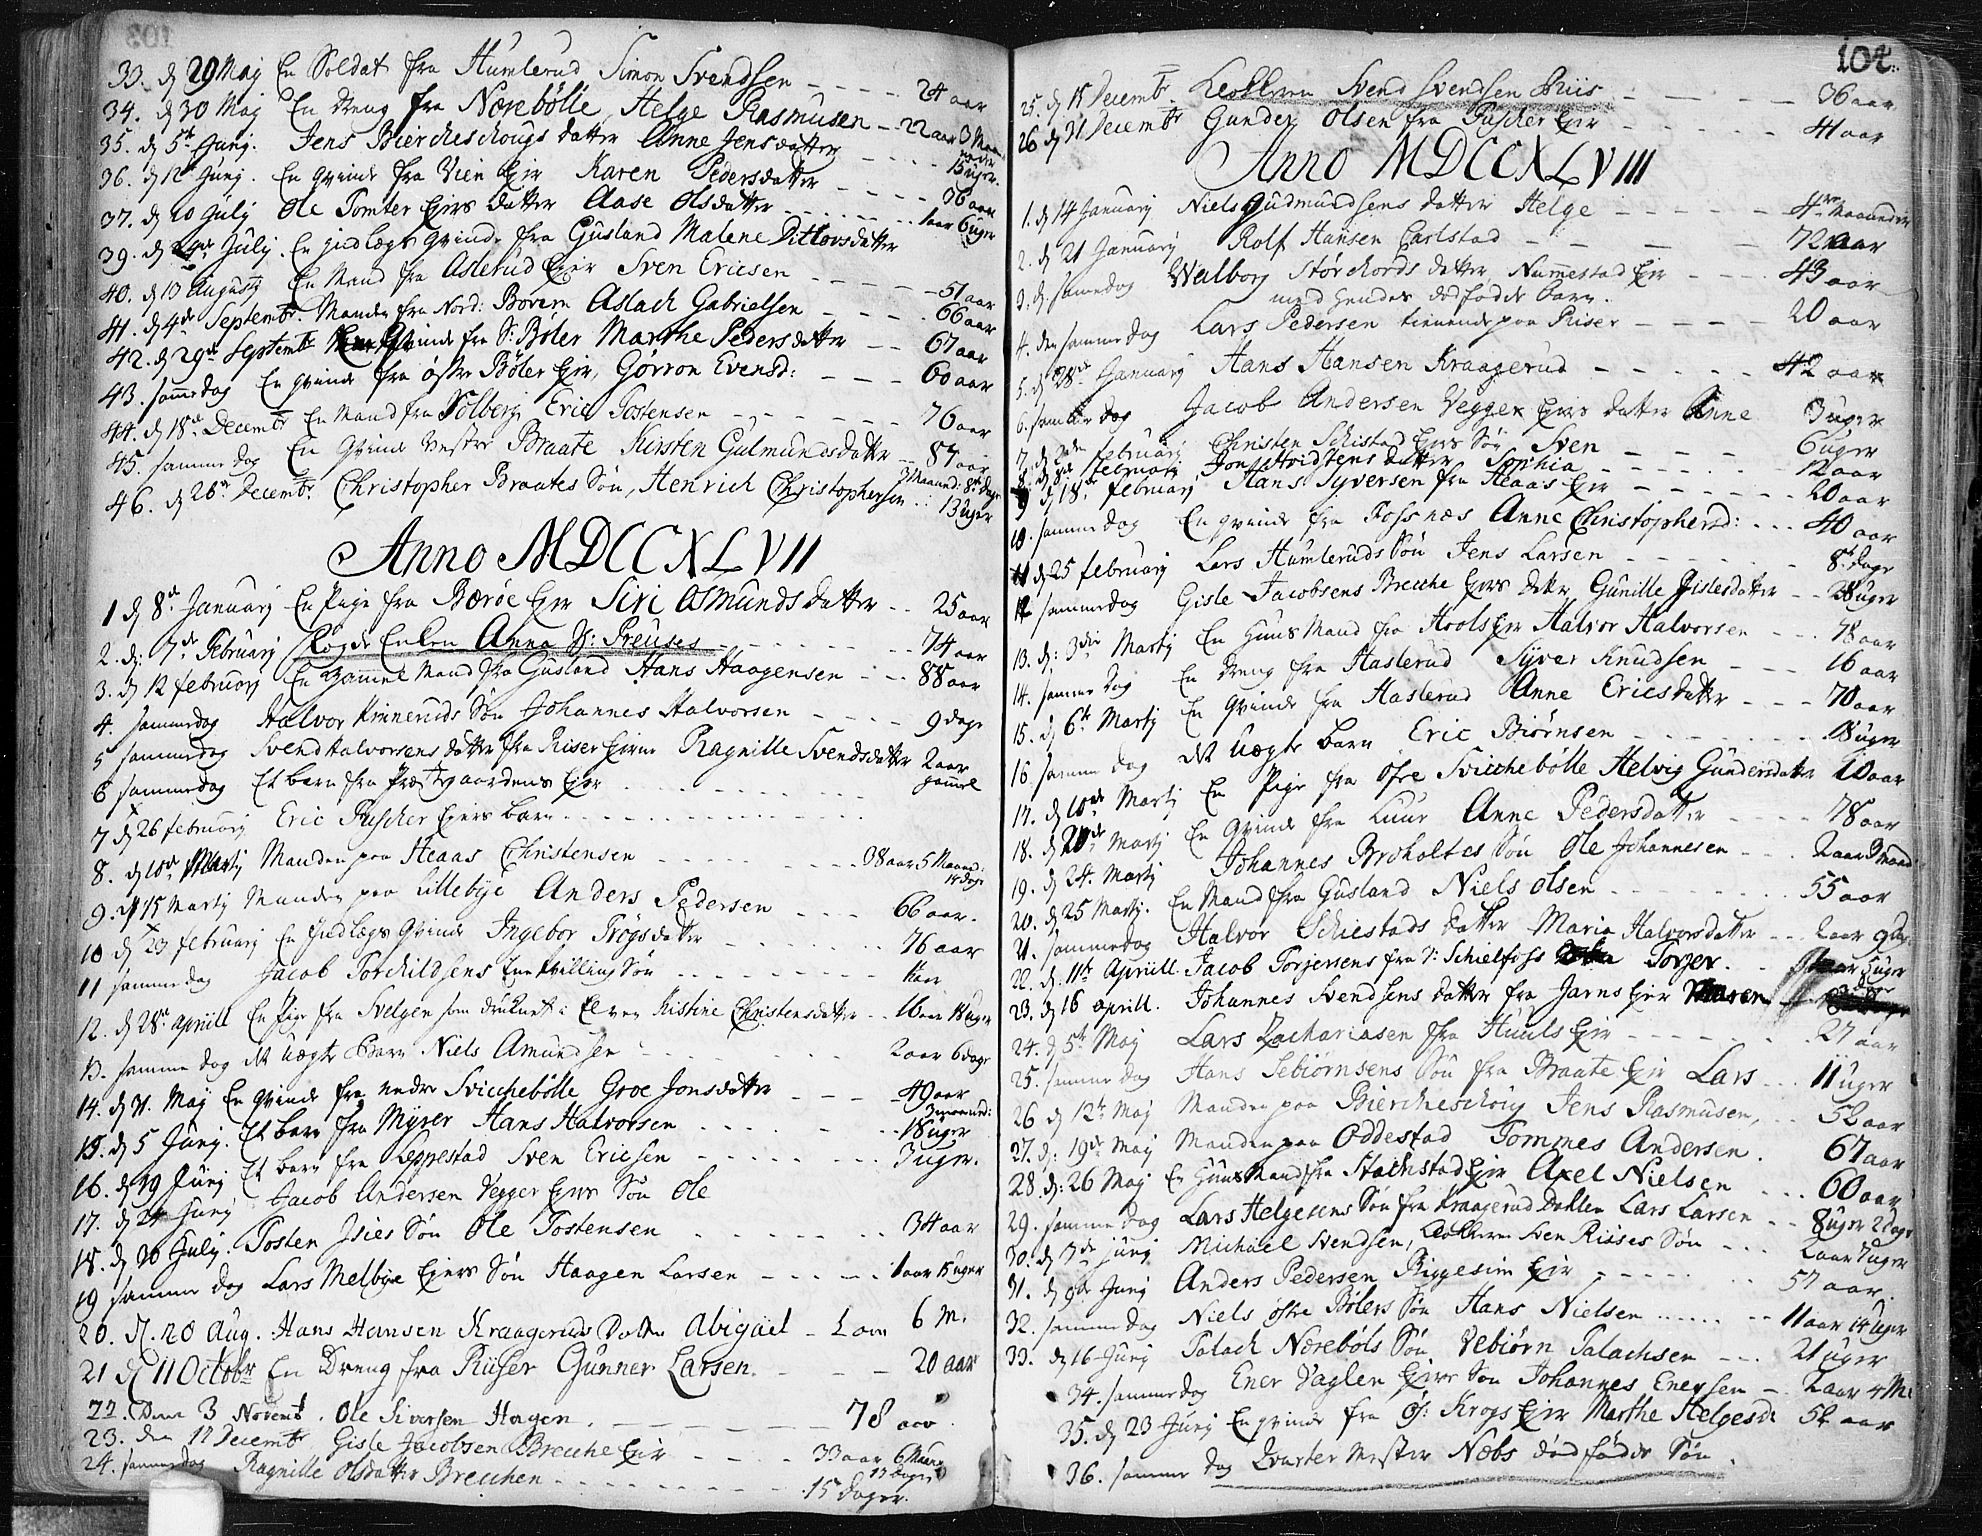 33. d 29 Maj En Soldat fra Humlerud Simon Svendsen - - - - - 24 aar
34. d 30 Maj En Dreng fra Nørebölle, Helge Rasmusen - - 22 aar 3 Maa
neder
35. d 5te Junj. Jens Biercheschougs datter Anne Jensdatter - - - - 13 uger.
36. d 12te Junj. En qvinde fra Vien Eir Karen Pedersdatter - - - 36 aar
37. d 10 Julj Ole Tomter Eiers datter Aase Olsdatter - - - - 1 aar 6 uger
39. d Julj. En indlægs qvinde fra Gusland Malene Ditlovsdatter
40. d 13 Augustj En Mand fra Aslerud Eir Sven Ericsen - - - - - 51 aar
41. d 4de Septembr. Manden fra Nord: Bovern Aslach Gabrielsen - - - - 66 aar
42. d 29de Septembr qvinde fra Sr: Bøler Marthe Pedersdatter - - 67 aar
43. samme dag En qvinde fra østre Bøler Eir, Gørron Evensd: - - - 60 aar
44. d 18de Decembr En Mand fra Solberg Eric Tostensen - - - - 76 aar
45. samme dag En Qvinde vestre Braate Kirsten Gulmundsdatter - 87 aar
46. d 26de Decembr. Christopher Braates Søn, Henrich Christophersen . . 3 Maaned: 8te dage
13 uger
Anno MDCCXLVII
1 d 8de Januarj En Pige fra Børöe Eir Siri Osmundsdatter - - 25 aar
2. d: 7de Februarj Enken Anna J: Preuses - - - - - 74 aar
3. d 12 februarj En Gammel Mand fra Gusland Hans Haagensen - - - 88 aar
4. sammedag Halvor Kinneruds Søn Johannes Halvorsen - - - - 9 dage
5 sammedag Svend Halvorsens datter fra Riser Eierne Ragnille Svendsdatter 2 aar
gammel
6 sammedag Et barn fra Præstgaardens Eier
7 d 26 februarj Eric Puscher Eiers barn - - - - -
8. d 10de Martj Manden paa Heaas Christensen - - - - - - 38 aar 5 Maaned:
14 dage
9. d 15 Martj Manden paa Lillebye Anders Pedersen - - - 66 aar.
10 d 23 februarj En Indlægs Qvinde Ingebor Trögsdatter - - - - 76 aar
11 samme dag Jacob Torchildsens Een tvilling Søn - - - - - -
12. d 28de apriill En Pige fra Svelgen som druknet i Elven Kistine Christensdatter - - 16 aar 18 uger
13. samme dag Et Uægte Barn Niels Amundsen - - - 2 aar 6 dage
14. d 31. Maj En qvinde fra nedre Svicchebölle Groe Jonsdatter - - - 40 aar
3 maaned:
15. d 5 Junj. Et barn fra Myrer Hans Halvorsen - - - - - - 18 uger
16. d 19 Junj Et barn fra Leppestad Sven Ericsen - - - - - - 3 uger.
17. d 24 Junj Jacob Andersen Vegger Eiers Søn Ole
18. d 30 Julj. Tosten Jsies Søn Ole Tostensen - - - - - - - 34 aar
19 samme dag Lars Melbye Eiers Søn Haagen Larsen - - - - - 1 aar 15 uger
20. d. 20 Aug. Hans Hansen Kraagerud Dotter Abigael - 2 aar 6 M.
21 d 11 Octobr En Dreng fra Riiser Gunner Larsen. - - - 20 aar
22. Den 3 Novemb. Ole Siversen Hagen. - - - - - 78 aar.
23. den 17 Decembr Gisle Jacobsen Brecche Eir - - - - 33 aar 6 Maan
17 dage
24. sammedag Ragnille Olsdatter Brecchen - - - - - - - 15 dager.
102.
25. d 15 Decembr Svend Svendsen Riis - - - - 36 aar
26 d 31 Decembr Gunder Olsen fra Puscher Eir - - - - - 41 aar
Anno MDCCXLVIII
1. d 14 Januarj Niels Gudmundsens datter Helge - - - - - - 4re Maaneder
2. d 21 Januarj Rolf Hansen Carlstad - - - - - - 72 aar
3. d. samedag Walborg Størchords datter, Nummestad Eir - - - 43 aar
med hendes dødfødde barn.
4. den samme dag Lars Pedersen tienende paa Riser - - - - 20 aar
5. d 28de Januarj Hans Hansen Kraagerud - - - - - 42 aar
6. samme dag Jacob Andersen Vegger Eiers datter Anne 3 uger
7. d 2den februarj Christen Schistad Eiers Søn Sven - - - - 6 uger
8. d 8de februarj Jon Hvidstens datter Sophia - - - - - - 12 aar
9 d 18de februarj Hans Syversen fra Heaas Eir - - - - - - - 20 aar
10. samme dag En qvinde fra Fossnæs Anne Christophersd: - - - 40 aar
11 d 25 februarj Lars Humleruds Søn Jens Larsen - - - - - - 8te dage
12 sammedag Gisle Jacobsens Brecche Eiers datter Gunille Gislesdatter - - 28 uger
13. d: 3die Martj En Huus Mand fra HoolsEir Halvor Halvorsen - - - 78 aar
14. samme dag En Dreng fra Haslerud Syver Knudsen - - - 16 aar
15. d 6te Martj En Qvinde fra Haslerud Anne Ericsdatter - - - 70 aar
16. samme dag Et Uægte barn Eric Biørnsen - - - - - - 18 uger
17. d 10de Martj En Pige fra Øfre Svicchebölle Helvig Gundersdatter 20 aar
18. d 20de Martj En Qvinde fra Luur Anne Pedersdatter - - - 78 aar
19. d 24. Martj Johannes Broholtes Søn Ole Johannesen - - - 2 aar 3 maan
20. d 25 Martj. En Mand fra Gusland Niels Olsen - - - - - - 55 aar
21. sammedag Halvor Schiestads datter Maria Halvorsdatter - - 2 aar 9 dag:
22. d. 11te Apriill Jacob Torjersens fra S: Schielfoss Torjer. - - 5 uger
23. d 16 aprill. Johannes Svendsens datter fra Jarns Eier Maren
24. d 5te Maj Lars Zachariasen fra Huuls Eir - - - - - - 27 aar
25. samme dag Hans Sebiørnsens Søn fra Braate Eir Lars - - . 11 uger
26 d 12te Maj Manden paa Biercheschoug Jens Rasmusen, - - 52 aar
27. d: 19de Maj Manden paa Oddestad Tommes Andersen. 67 aar
28. d: 26 Maj En Huus Mand fra Stachstad Eir Axel Nielsen - - - 60 aar
29. samme dag Lars Helgesens Søn fra Kraagerud Dahlen Lars Larsen - - 8 uger 2 dage
30. d 7de junj Michael Svendsen, Sven Riises Søn - - - 2 aar 7 uger
31. d 9de Junj Anders Pedersen Riggesiin Eir - - - - - - - 57 aar.
32. samme dag Niels østre Bølers Søn Hans Nielsen - - - - - 11 aar 14 uger
33. d 16 Junj Talach Nørebøls Søn Vebiørn Talachsen - - - 21 uger
34. samme dag Ener Vaglen Eiers Søn Johannes Enersen - 2 aar 4 M:
35. d 23 Junj En qvinde fra Ø: Krogs Eir Marthe Helgesd 52 aar
36. samme dag Qvarter Mester Næbs dødfødde Søn.